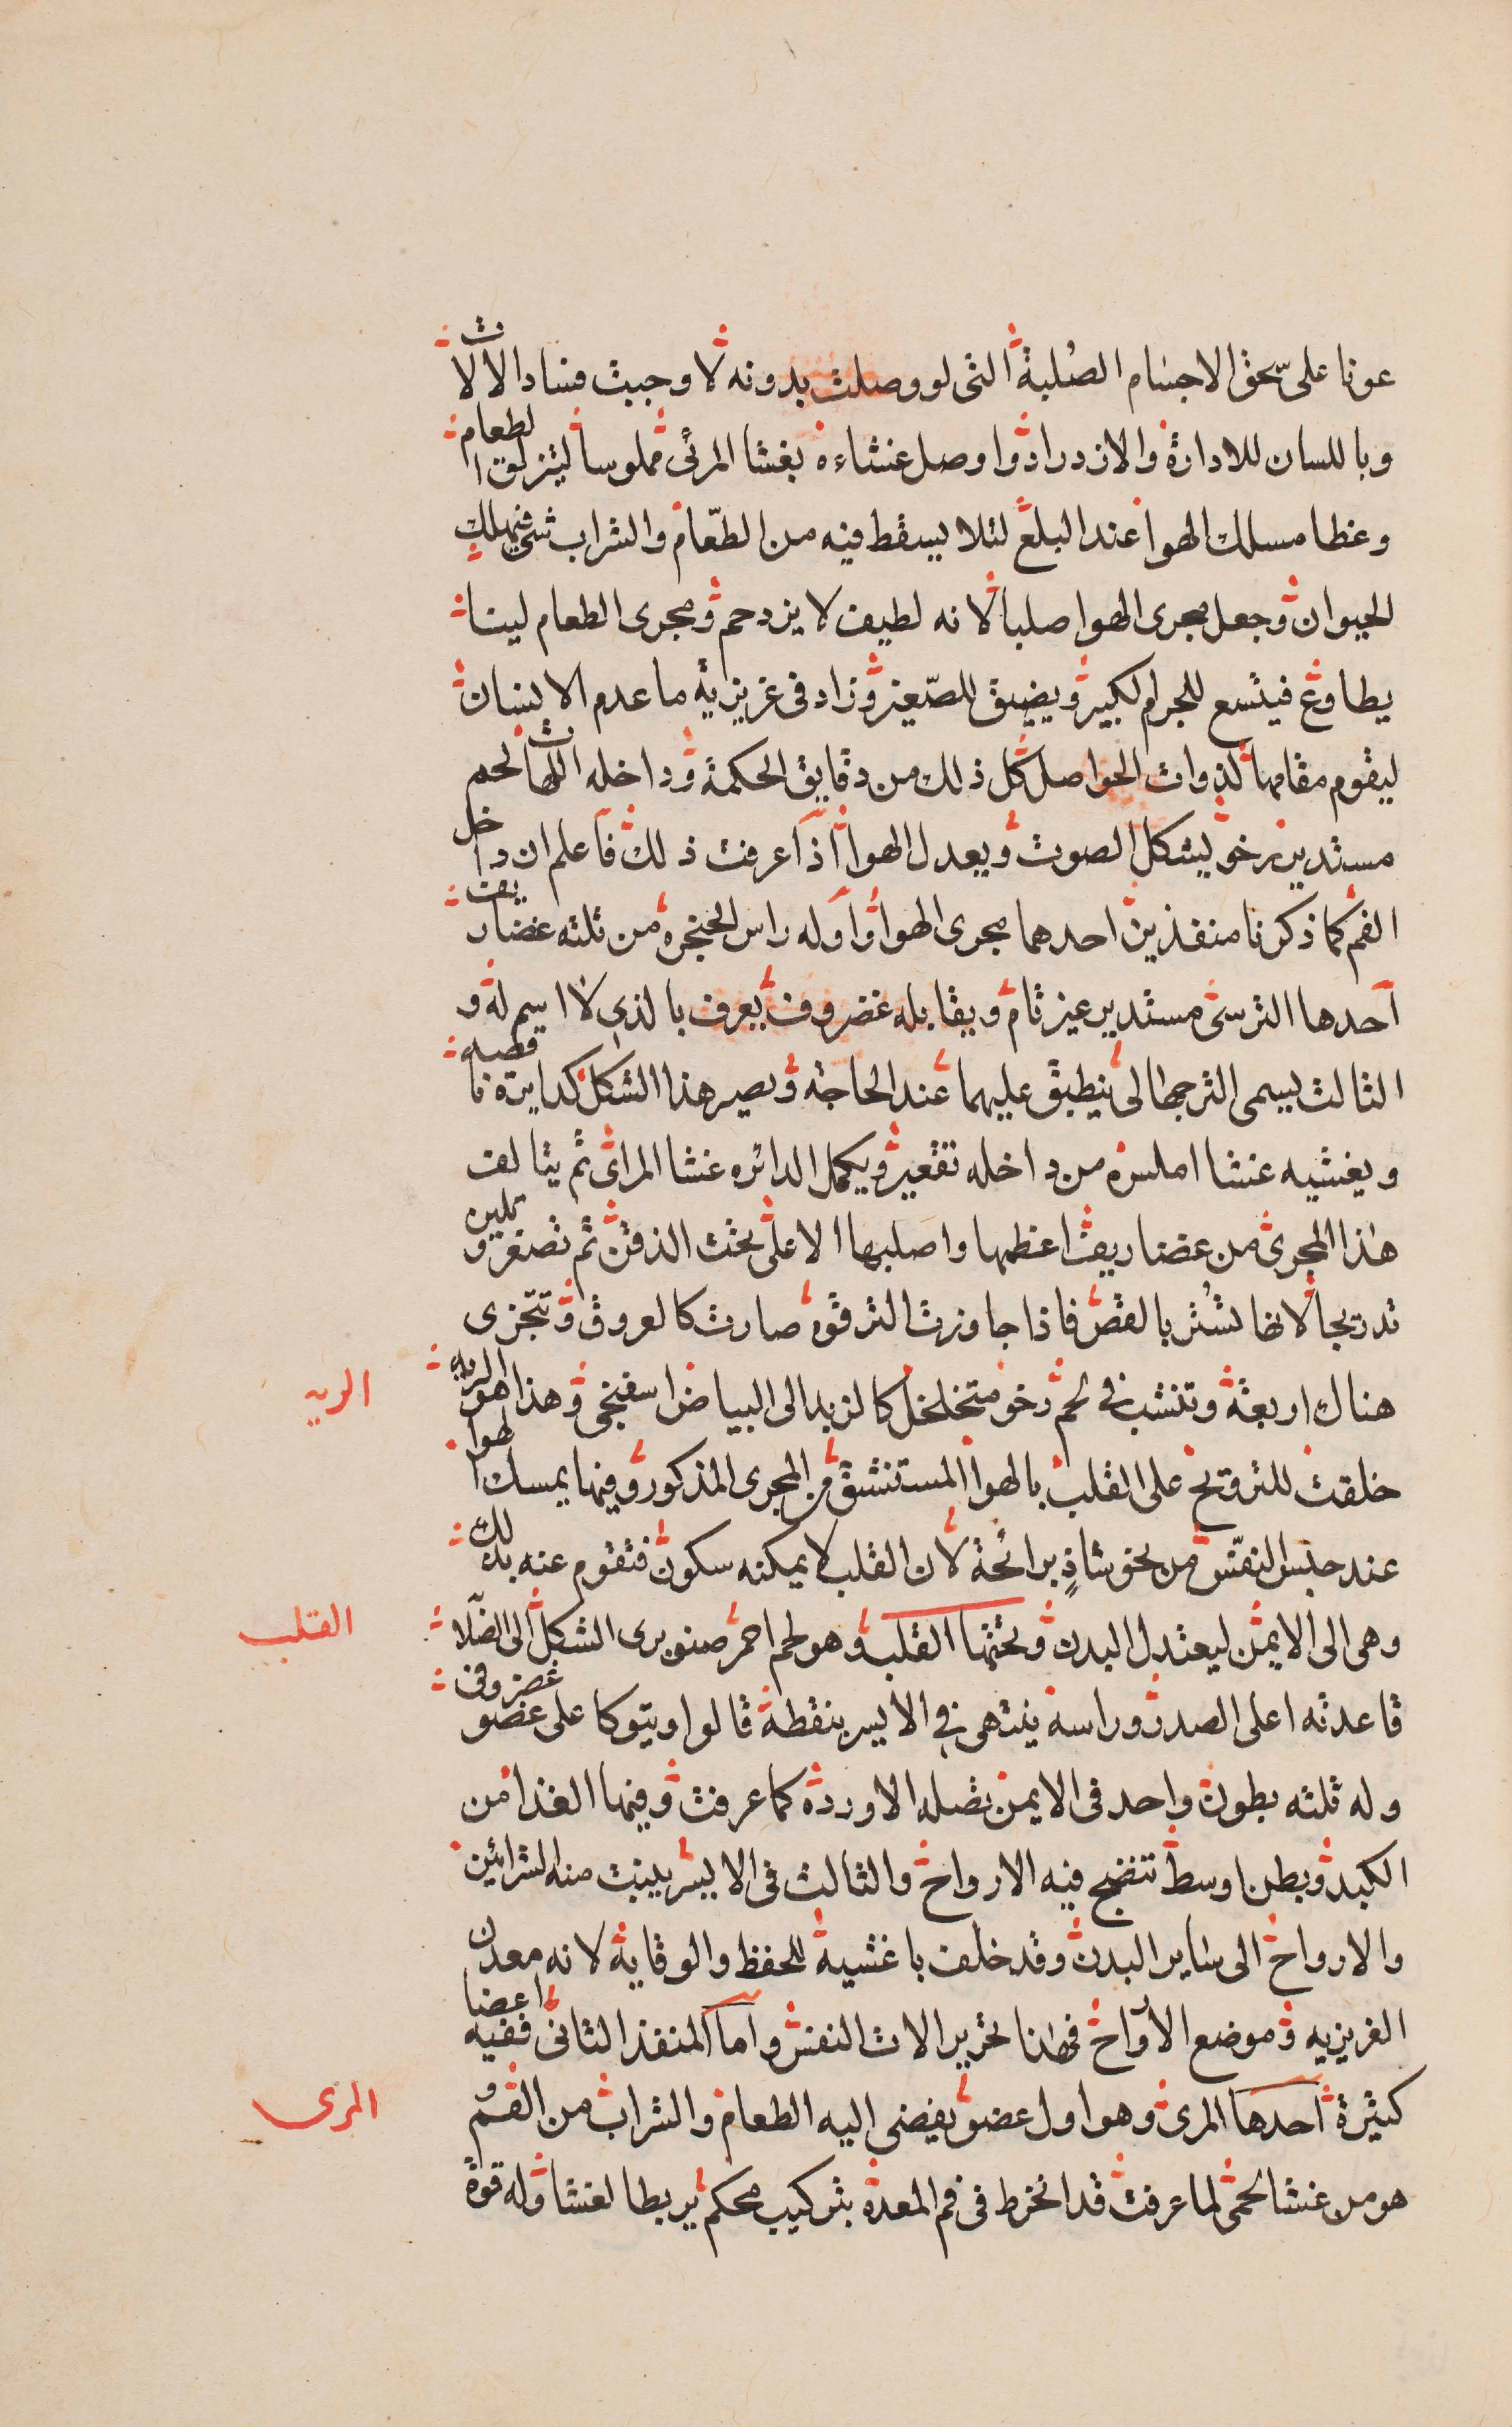 عونا على سحق الاجسام الصُلبة التى لو وصلت بدونه لاوجبت فساد الالالات
وباللسان للادارة والازدراد واوصل غشاءه بغشا المرئى مملوسا ليتزلق الطعام
وغطا مسلك الهوا عند البلع لئلا يسقط فيه من الطّعام والشراب شى فيهلك
الحيوان وجعل مجرى الهوا صلبا لانه لطيف لا يزدحم ومجرى الطعام لينا
يطاوع فيتسع للجرم الكبير ويضيق للصّغير وزاد فى غريزية ما عدم الاسنان
ليقوم مقامها لذوات الحواصل كل ذلك من دقايق الحكمة وداخله اللهات لحم
مستدير رخو ليشكل الصوت ويعدل الهوا اذا عرفت ذلك فاعلم ان داخل
الفم كما ذكرنا منفذين احدهما مجرى الهوا واوله راس الحنجره من ثلثه غضاريف
احدها الترسى مستدير غير تام ويقابله غضروف يعرف بالذى لا اسم له و
الثالث يسمى الترجهالى ينطبق عليهما عند الحاجة ويصير هذا الشكل كدايرة ناقصه
ويغشيه غشا املس من داخله تقعير ويكمل الدائره غشا المرائ ثم يتالف
هذا المجرى من غضاريف اعظمها واصلبها الاعلى تحت الذقن ثم تصغر وتلين
تدريجا لانها تُستر بالقص فاذا جاوزت الترقوه صارت كالعروق وتتجزى
هناك اربعة وتنشب فى لحم رخو متخلخل كالزبد الى البياض اسفنجى وهذا هو الريه
الريه
خلقت للترويح على القلب بالهوا المستنشق من المجرى المذكور وفيها يمسك الهوا
عند حبس النفّس من نحو شاذٍ برائحة لان القلب لا يمكنه سكون فتقوم عنه بذلك
وهى الى الايمن ليعتدل البدن وتحتها القلب وهو لحم احمر صنوبرى الشكل الى الصّلا
القلب
قاعدته اعلى الصدر وراسه ينتهى فى الايسر بنقطة قالوا ويتوكا على عضو غضروفى
وله ثلثه بطون واحد فى الايمن تصله الاوردة كما عرفت وفيها الغذا من
الكبد وبطن اوسط تنضج فيه الارواح والثالث فى الايسر ينبت منه الشرائين
والارواح الى ساير البدن وقد خلف باغشية للحفظ والوقاية لانه معدن
الغريزيه وموضع الارواح فهذا تحرير الات النفس واما المنفذ الثانى ففيه اعضا
كثيرة احدها المرى وهو اول عضو يفضى اليه الطعام والشراب من الفم و
المرى
هو من غشا لحمى لما عرفت قد انخرط فى فم المعدة بتركيب محكم يربطا لغشا وله قوة